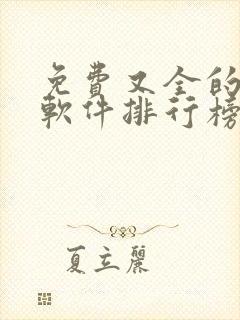 免費又全的
軟件排行榜
夏立麗